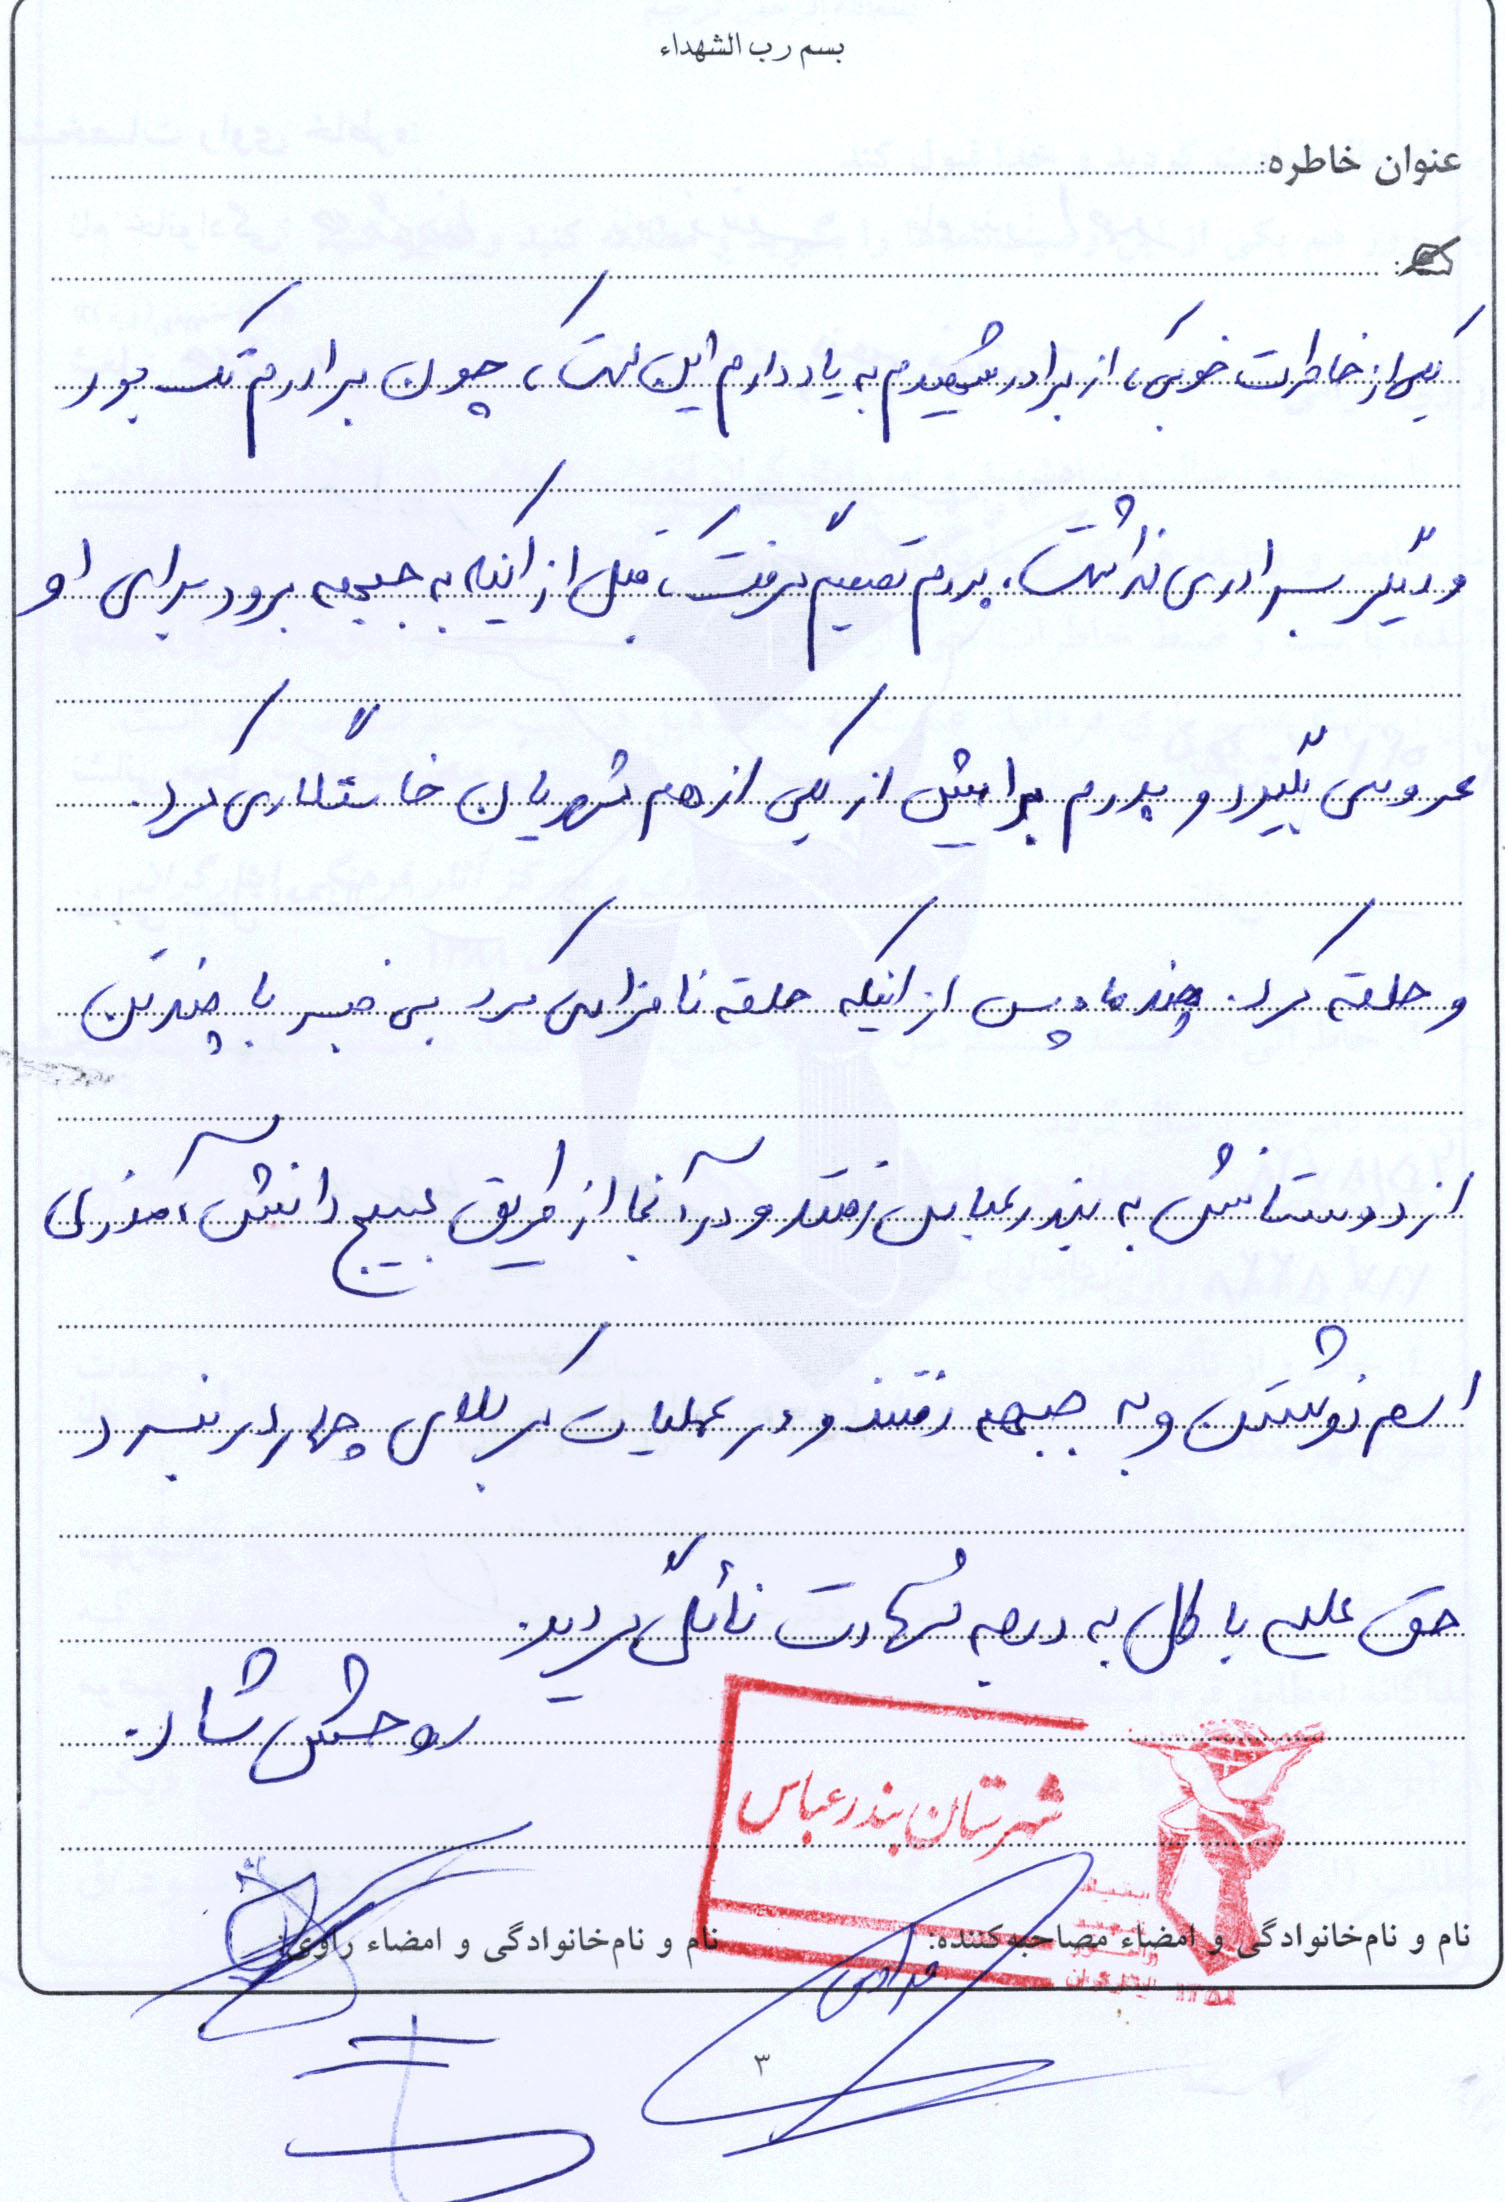 بسم رب الشهداء
عنوان خاطره:
یکی از خاطرات خوبی، از برادر شهیدم به یاد دارم این است، چون برادرم تک بود
و دیگر برادری نداشت، پدرم تصمیم گرفت، قبل از اینکه به جبهه برود برای او
عروسی بگیرد و پدرم برایش از یکی از هم شهریان خاستگاری کرد.
و حلقه کرد. چند ماه پس از اینکه حلقه نامزدی کرد بی خبر با چند تن
از دوستانش به بندرعباس رفتند و در آنجا از طریق بسیج دانش آموزی
اسم نوشتن و به جبهه رفتند و در عملیات کربلای چهار در نبرد
حق علیه باطل به درجه شهادت نائل گردید.
روحش شاد.
شهرستان بندرعباس
نام و نام‌خانوادگی و امضاء مصاحبه‌کننده:
نام و نام‌خانوادگی و امضاء راوی:
۳